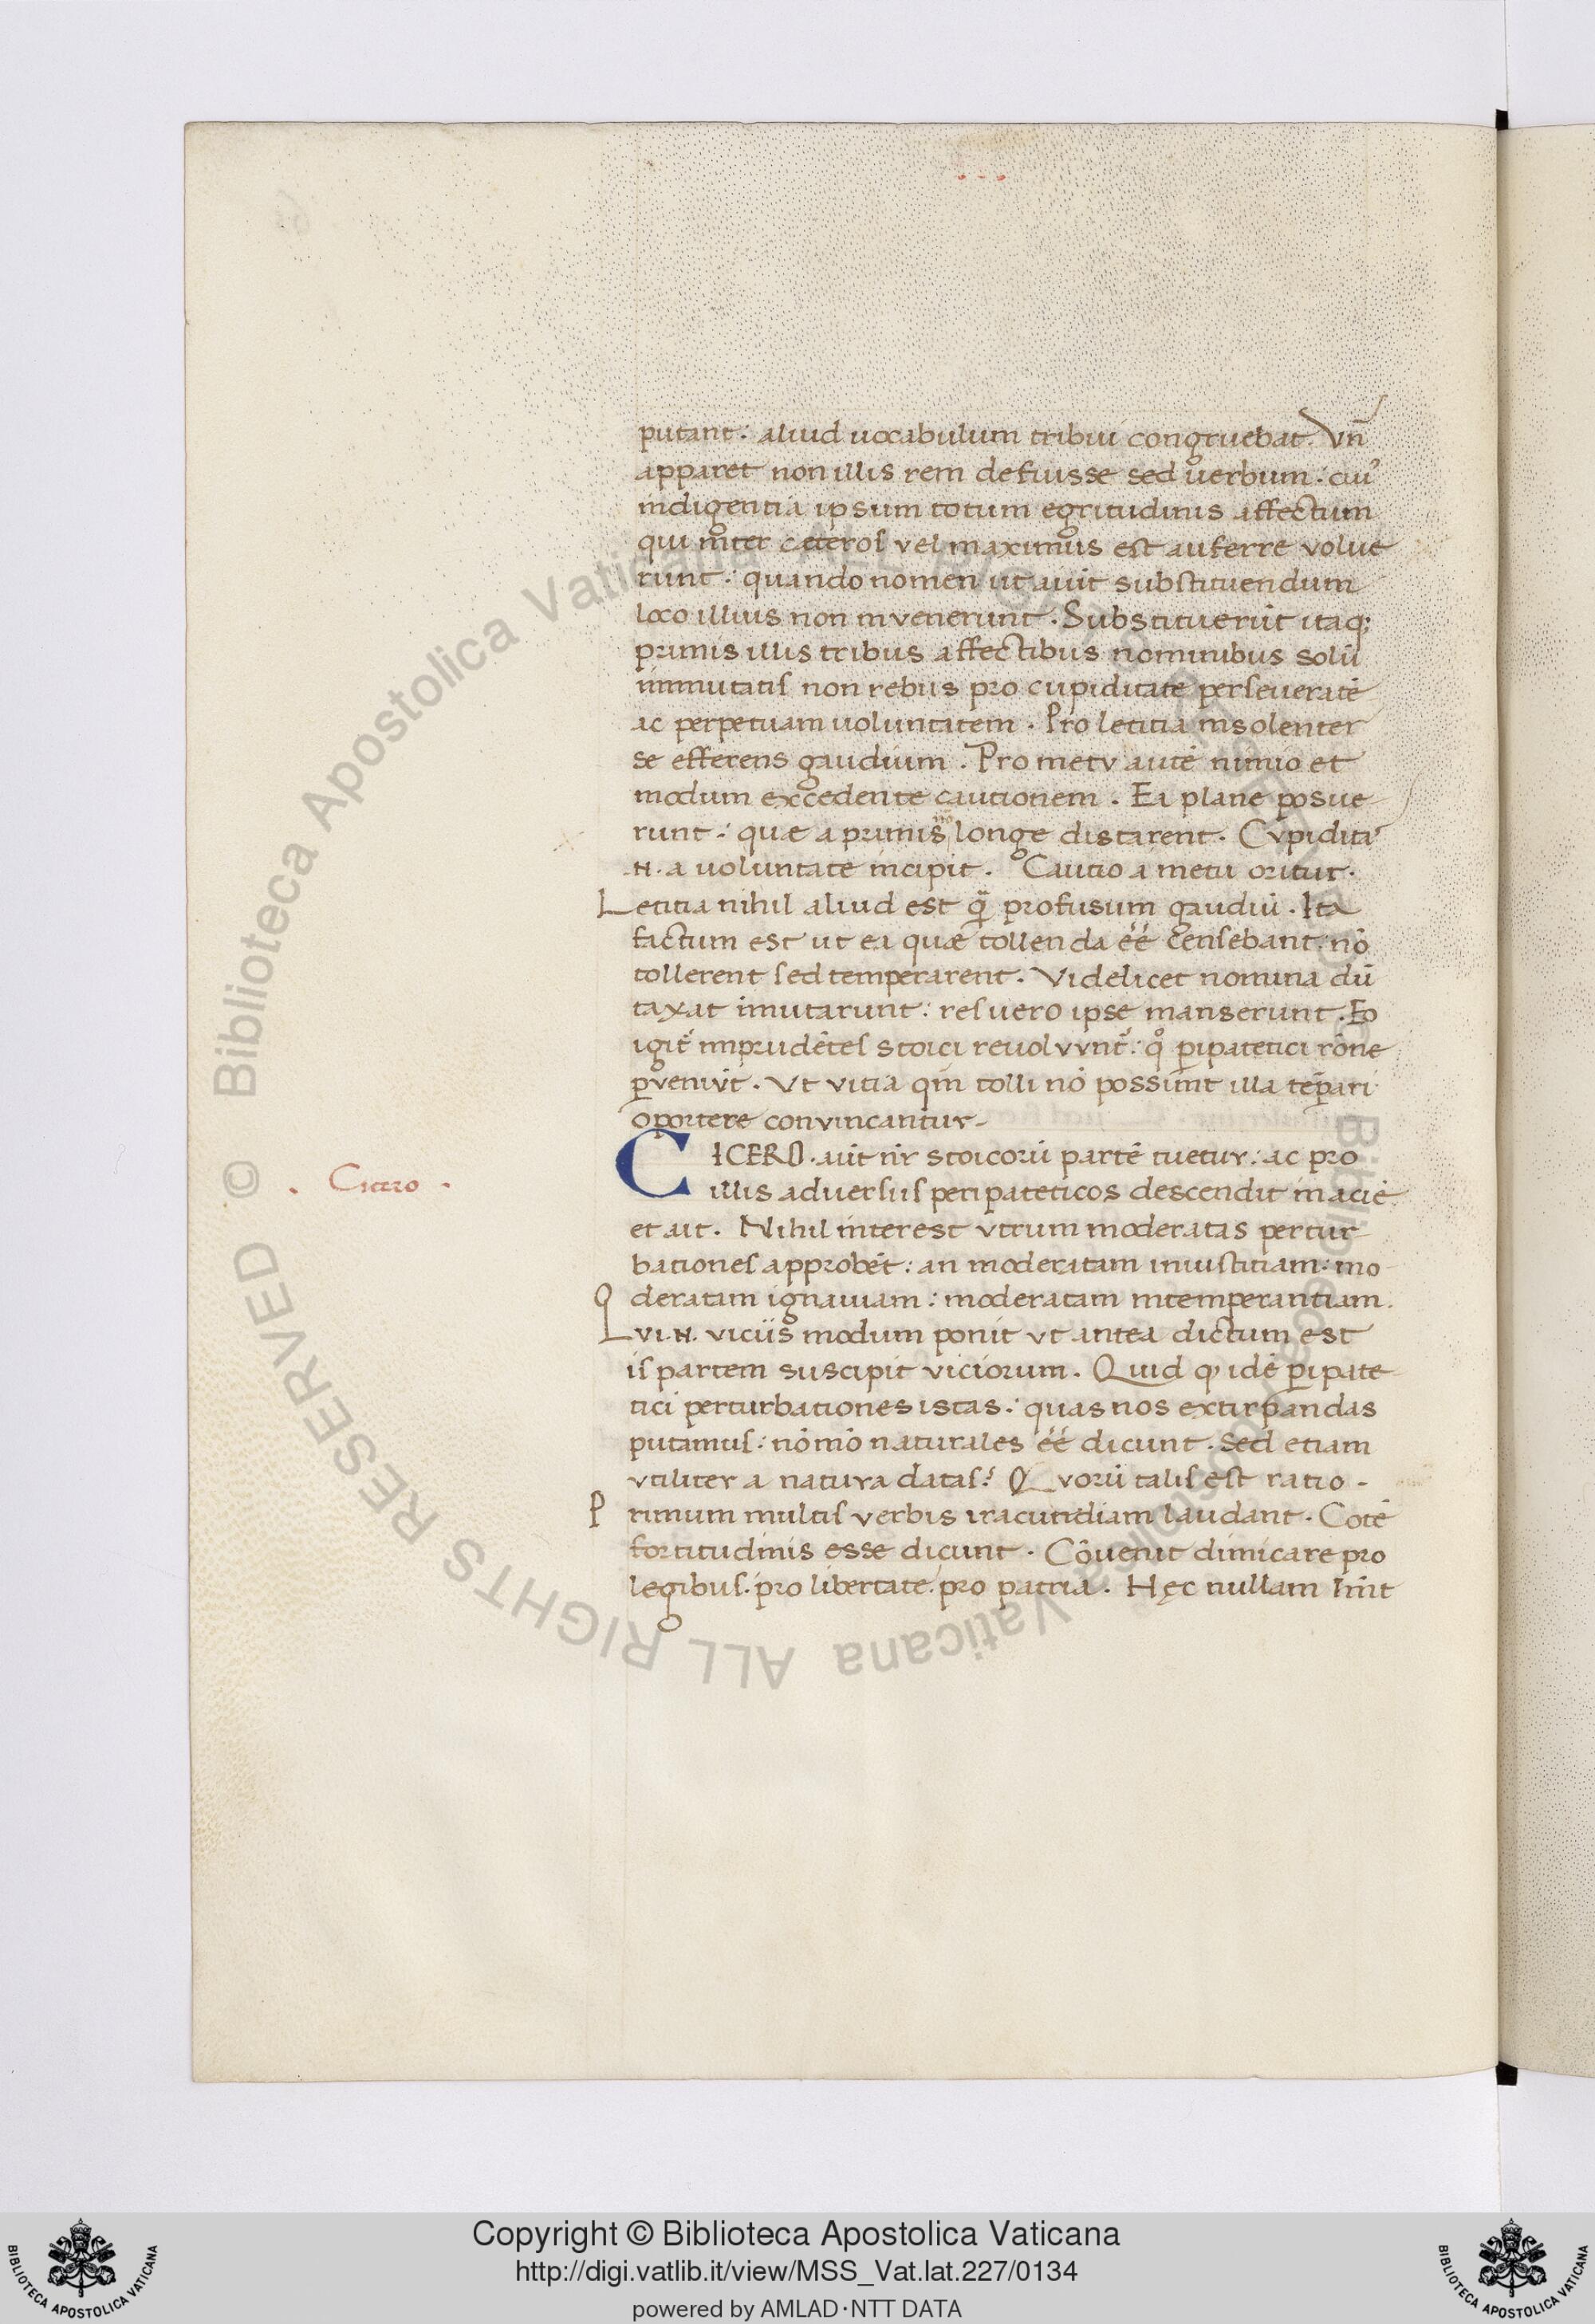 putant: aliud vocabulum tribui congruebat. Vn̄
apparet non illis rem defuisse sed verbum: cuiꝰ
indigentia ipsum totum egritudinis affectum
qui inter ceteros vel maximus est auferre volue
runt: quando nomen ut auit substituendum
loco illius non invenerunt. Substituerūt itaq;
primis illis tribus affectibus nominibus solū
immutatis non rebus pro cupiditate perseueratē
ac perpetuam uoluntatem. Pro letitia insolenter
se efferens gaudium. Pro metv autē nimio et
modum excedente cautionem. Ea plane posue
runt: quae a primis nō longe distarent. Cvpidita
.N. a uoluntate incipit. Cautio a metu oritur.
Letitia nihil aliud est qᷓ profusum gaudiū. Ita
factum est ut ea quæ tollenda éé censebant: nō
tollerent sed temperarent. Videlicet nomina dū
taxat īmutarunt: res uero ipse manserunt. Eo
igit̃ imprudētes stoici reuolvvnt̃: qͦ ꝑipatetici rōne
ꝑveniūt. Vt vitia qm̄ tolli nō possunt illa tēꝑari
oportere convincantur.
CICERO. aut nr̄ stoicorū partē tuetur: ac pro
. Cicero .
illis adversus peripateticos descendit in aciē
et ait. Nihil interest vtrum moderatas pertur
bationes approbēt: an moderatam iniustitiam: mo
deratam ignauiam: moderatam intemperantiam.
Qvi .N. viciis modum ponit vt antea dictum est
is partem suscipit viciorum. Quid qꝫ idē ꝑipate
tici perturbationes istas: quas nos extirpandas
putamus: nōmō naturales éé dicunt. Sed etiam
vtiliter a natura datas? Qvorū talis est ratio.
Primum multis verbis iracundiam laudant. Cotē
fortitudinis esse dicunt. Cōuenit dimicare pro
legibus. pro libertate. pro patria. Hęc nullam
Copyright © Biblioteca Apostolica Vaticana
http://digi.vatlib.it/view/MSS_Vat.lat.227/0134
powered by AMLAD·NTT DATA
© Biblioteca Apostolica Vaticana ALL RIGHTS RESERVED
BIBLIOTECA APOSTOLICA VATICANA
BIBLIOTECA APOSTOLICA VATICANA